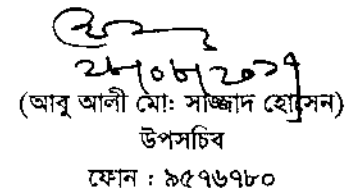 ২৮/০৮/২০১৭
(আবু আলী মোঃ সাজ্জাদ হোসেন)
উপসচিব
ফোন : ৯৫৭৬৭৮০